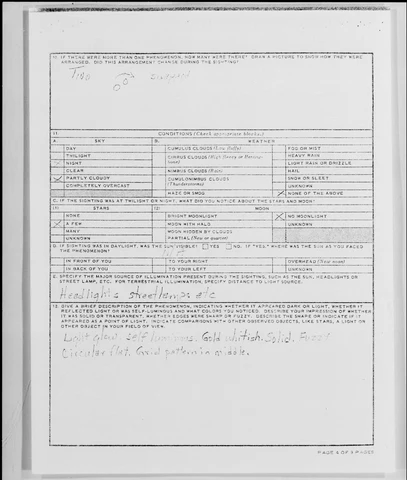 10. IF THERE WERE MORE THAN ONE PHENOMENON, HOW MANY WERE THERE? DRAW A PICTURE TO SHOW HOW THEY WERE
ARRANGED. DID THIS ARRANGEMENT CHANGE DURING THE SIGHTING?
11. CONDITIONS (Check appropriate blocks)
A. SKY B. WEATHER
DAY CUMULUS CLOUDS (Low fluffy) FOG OR MIST
TWILIGHT CIRRUS CLOUDS HEAVY RAIN
NIGHT LIGHT RAIN OR DRIZZLE
CLEAR NIMBUS CLOUDS (Rain) HAIL
PARTLY CLOUDY CUMULONIMBUS CLOUDS SNOW OR SLEET
COMPLETELY OVERCAST (Thunderstorms) UNKNOWN
HAZE OR SMOG NONE OF THE ABOVE
C. IF THE SIGHTING WAS AT TWILIGHT OR NIGHT, WHAT DID YOU NOTICE ABOUT THE STARS AND MOON?
(1) STARS (2) MOON
NONE BRIGHT MOONLIGHT NO MOONLIGHT
A FEW MOON WITH HALO UNKNOWN
MANY MOON HIDDEN BY CLOUDS
UNKNOWN PARTIAL (New or quarter)
D. IF SIGHTING WAS IN DAYLIGHT, WAS THE SUN VISIBLE? YES NO. IF "YES," WHERE WAS THE SUN AS YOU FACED
THE PHENOMENON?
IN FRONT OF YOU TO YOUR RIGHT OVERHEAD (Near noon)
IN BACK OF YOU TO YOUR LEFT UNKNOWN
E. SPECIFY THE MAJOR SOURCE OF ILLUMINATION PRESENT DURING THE SIGHTING, SUCH AS THE SUN, HEADLIGHTS OR
STREET LAMP, ETC. FOR TERRESTRIAL ILLUMINATION, SPECIFY DISTANCE TO LIGHT SOURCE.
Headlights streetlamps etc
12. GIVE A BRIEF DESCRIPTION OF THE PHENOMENON, INDICATING WHETHER IT APPEARED DARK OR LIGHT, WHETHER IT
REFLECTED LIGHT OR WAS SELF-LUMINOUS AND WHAT COLORS YOU NOTICED. DESCRIBE YOUR IMPRESSION OF WHETHER
IT WAS SOLID OR TRANSPARENT, WHETHER EDGES WERE SHARP OR FUZZY. DESCRIBE THE SHAPE OR INDICATE IF IT
APPEARED AS A POINT OF LIGHT. INDICATE COMPARISONS WITH OTHER OBSERVED OBJECTS, LIKE STARS, A LIGHT OR
OTHER OBJECT IN YOUR FIELD OF VIEW.
Light glow. self luminous. Gold whitish. Solid. Fuzzy
Circular flat. Grid pattern in middle.